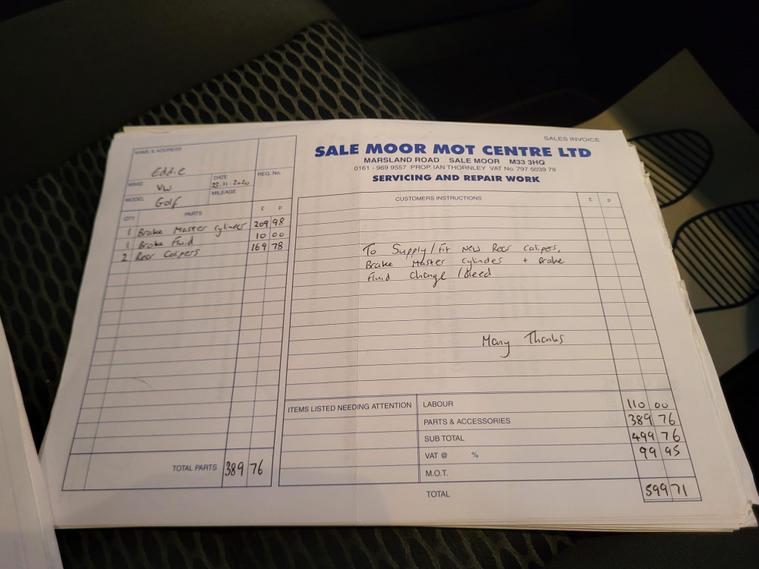 SALES INVOICE
NAME & ADDRESS
Eddie
MAKE VW DATE 23.11.2020 REG. No.
MODEL Golf MILEAGE
QTY PARTS £ P
1 Brake Master Cylinder 209 98
1 Brake Fluid 10 00
2 Rear Calipers 169 78
TOTAL PARTS 389 76
SALE MOOR MOT CENTRE LTD
MARSLAND ROAD SALE MOOR M33 3HQ
0161 - 969 9557 PROP. IAN THORNLEY VAT No. 797 5039 78
SERVICING AND REPAIR WORK
CUSTOMERS INSTRUCTIONS £ P
To Supply/fit New Rear calipers,
Brake Master Cylinder + Brake
Fluid Change / Bleed
Many Thanks
ITEMS LISTED NEEDING ATTENTION LABOUR 110 00
PARTS & ACCESSORIES 389 76
SUB TOTAL 499 76
VAT @ % 99 95
M.O.T.
TOTAL 599 71